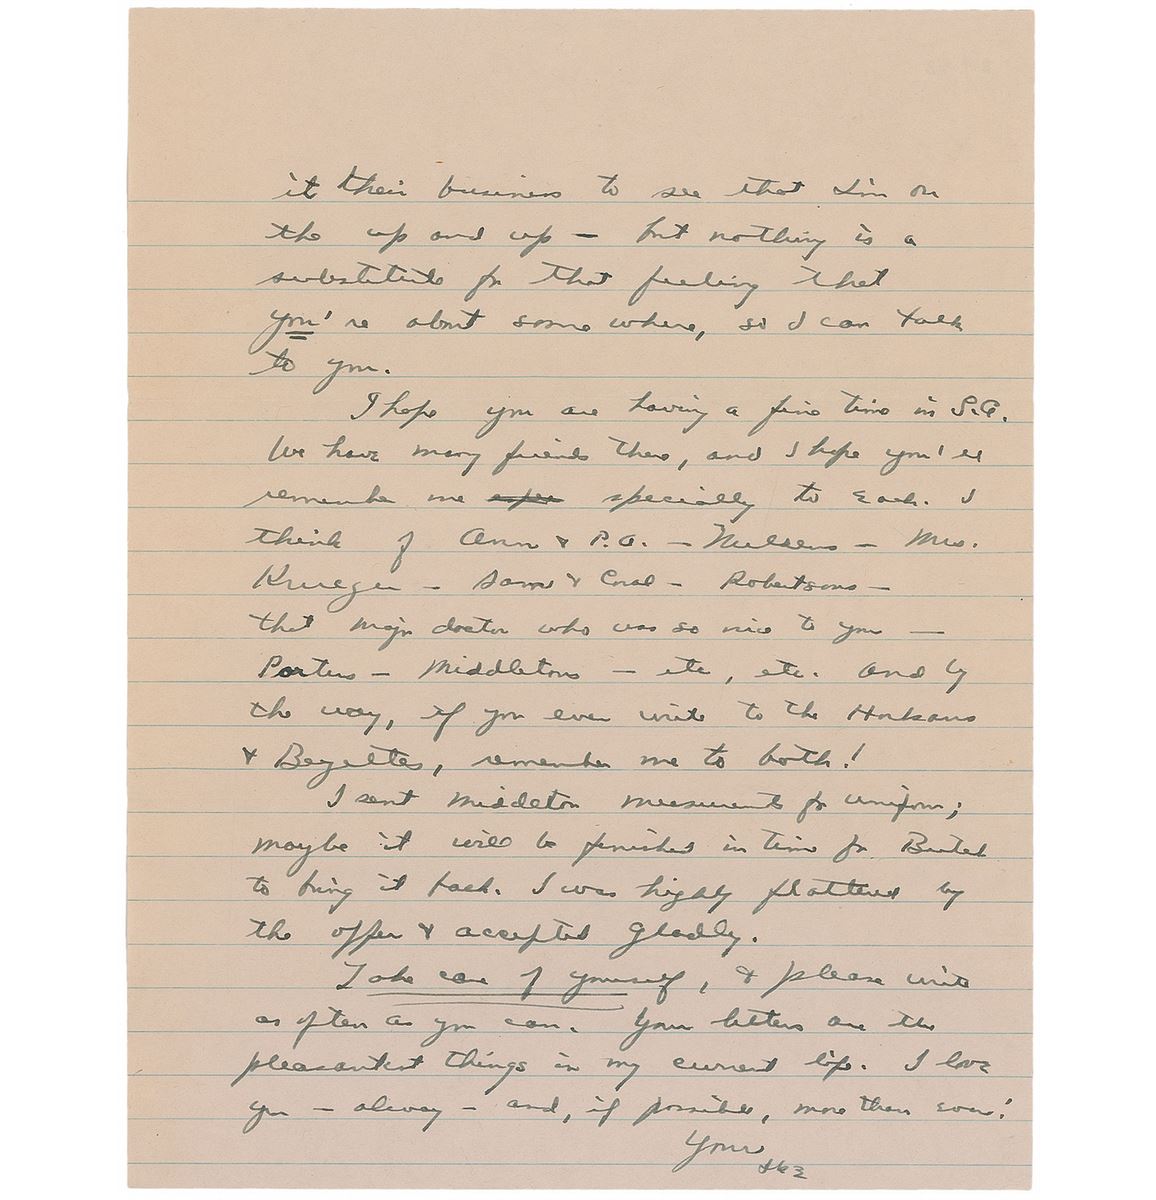 it their business to see that I'm on
the up and up — but nothing is a
substitute for that feeling that
you're about somewhere, so I can talk
to you.
I hope you are having a fine time in S.A.
We have many friends there, and I hope you'll
remember me specially to each. I
think of Ann & P.A. — — Mrs.
Krueger — & — Robertsons —
that major doctor who was so nice to you —
Porters — Middletons — etc, etc. And by
the way, if you ever write to the
& Beyettes, remember me to both!
I sent Middleton measurements for uniform;
maybe it will be finished in time for
to bring it back. I was highly flattered by
the offer & accepted gladly.
Take care of yourself, & please write
as often as you can. Your letters are the
pleasantest things in my current life. I love
you — always — and, if possible, more than ever!
Your
Ike